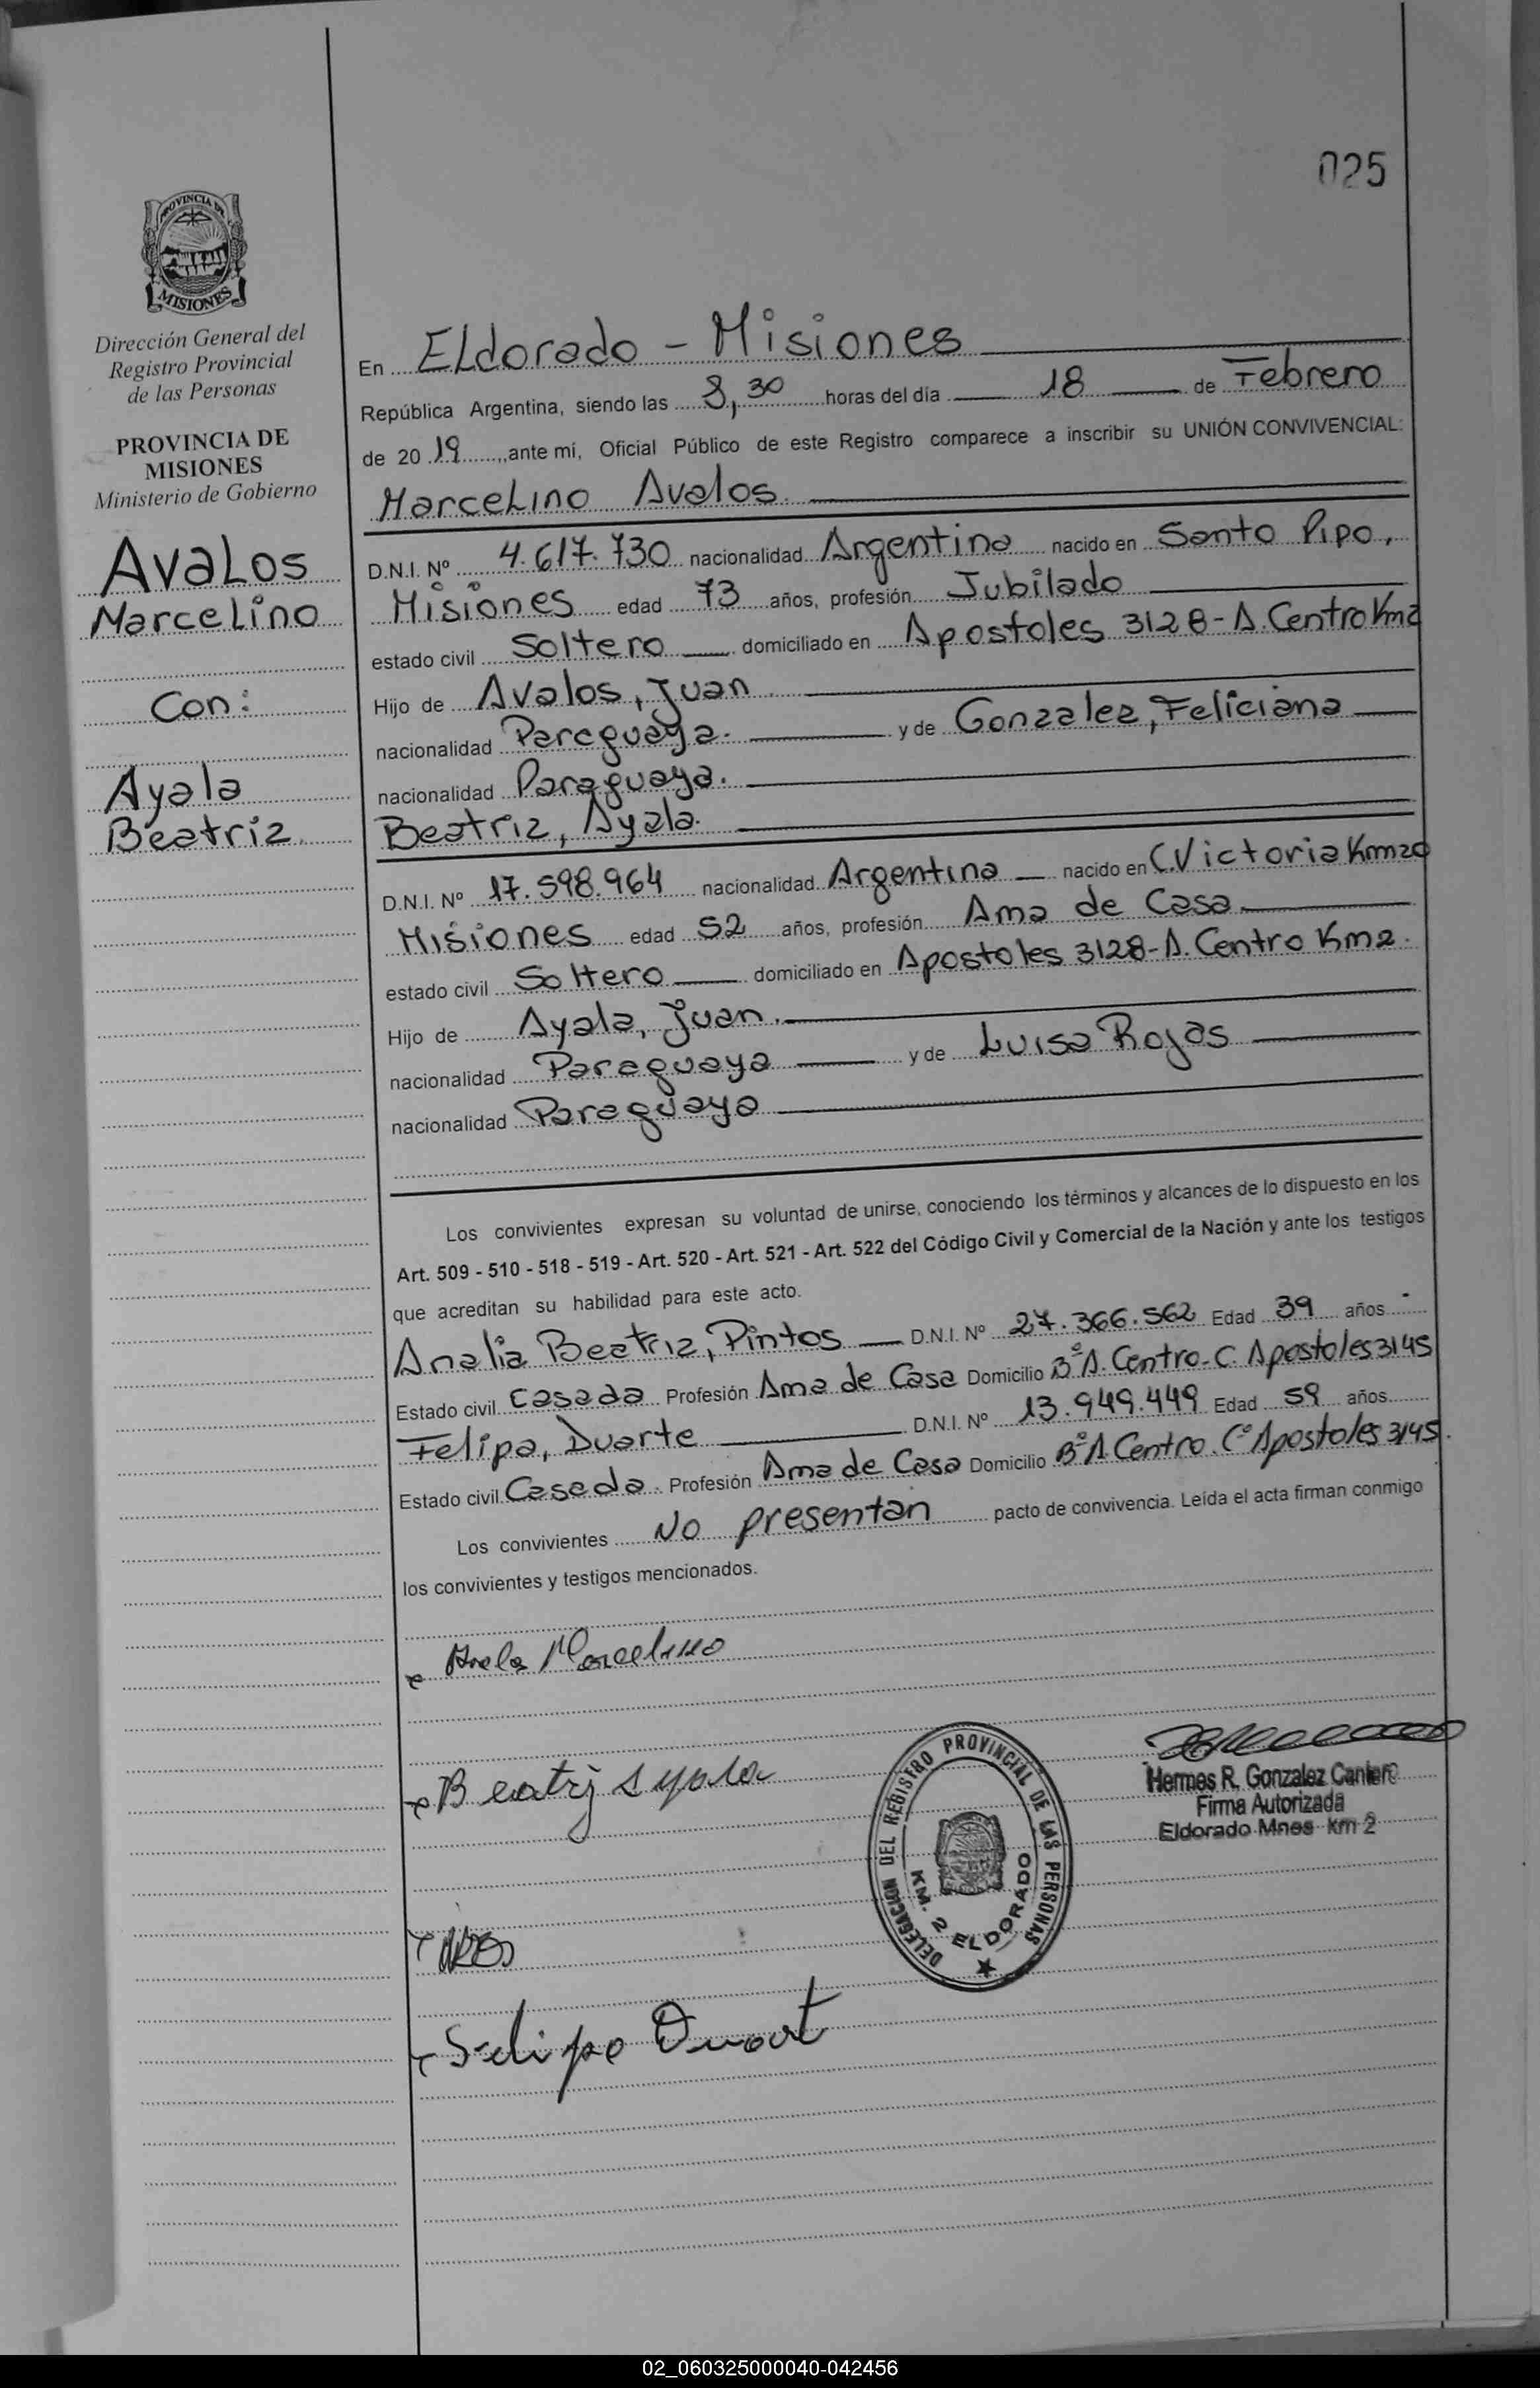 025
PROVINCIA DE
MISIONES
Dirección General del
Registro Provincial
de las Personas
PROVINCIA DE
MISIONES
Ministerio de Gobierno
Avalos
Marcelino
Con:
Ayala
Beatriz
En Eldorado - Misiones
República Argentina, siendo las 8,30 horas del día 18 de Febrero
de 2019, ante mí, Oficial Público de este Registro comparece a inscribir su UNIÓN CONVIVENCIAL:
Marcelino Avalos.
D.N.I. Nº 4.617.730 nacionalidad Argentina nacido en Santo Pipo,
Misiones edad 73 años, profesión Jubilado
estado civil Soltero domiciliado en Apostoles 3128 - A. Centro Km2
Hijo de Avalos, Juan
nacionalidad Paraguaya. y de Gonzalez, Feliciana
nacionalidad Paraguaya.
Beatriz, Ayala.
D.N.I. Nº 17.598.964 nacionalidad Argentina nacido en C.Victoria Km20
Misiones edad 52 años, profesión Ama de Casa
estado civil Soltero domiciliado en Apostoles 3128-A. Centro Km2.
Hijo de Ayala, Juan.
nacionalidad Paraguaya y de Luisa Rojas
nacionalidad Paraguaya
Los convivientes expresan su voluntad de unirse, conociendo los términos y alcances de lo dispuesto en los
Art. 509 - 510 - 518 - 519 - Art. 520 - Art. 521 - Art. 522 del Código Civil y Comercial de la Nación y ante los testigos
que acreditan su habilidad para este acto.
Analia Beatriz, Pintos D.N.I. Nº 27.366.562 Edad 39 años
Estado civil Casada Profesión Ama de Casa Domicilio Bº A. Centro - C. Apostoles 3145
Felipa, Duarte D.N.I. Nº 13.949.449 Edad 59 años
Estado civil Casada. Profesión Ama de Casa Domicilio Bº A Centro. Cº Apostoles 3145.
Los convivientes No presentan pacto de convivencia. Leída el acta firman conmigo
los convivientes y testigos mencionados.
Marcelino
Beatriz Ayala
DELEGACION DEL REGISTRO PROVINCIAL DE LAS PERSONAS
KM. 2 ELDORADO
Hermes R. Gonzalez Cantero
Firma Autorizada
Eldorado Mnes km 2
Felipa Duart
02_060325000040-042456